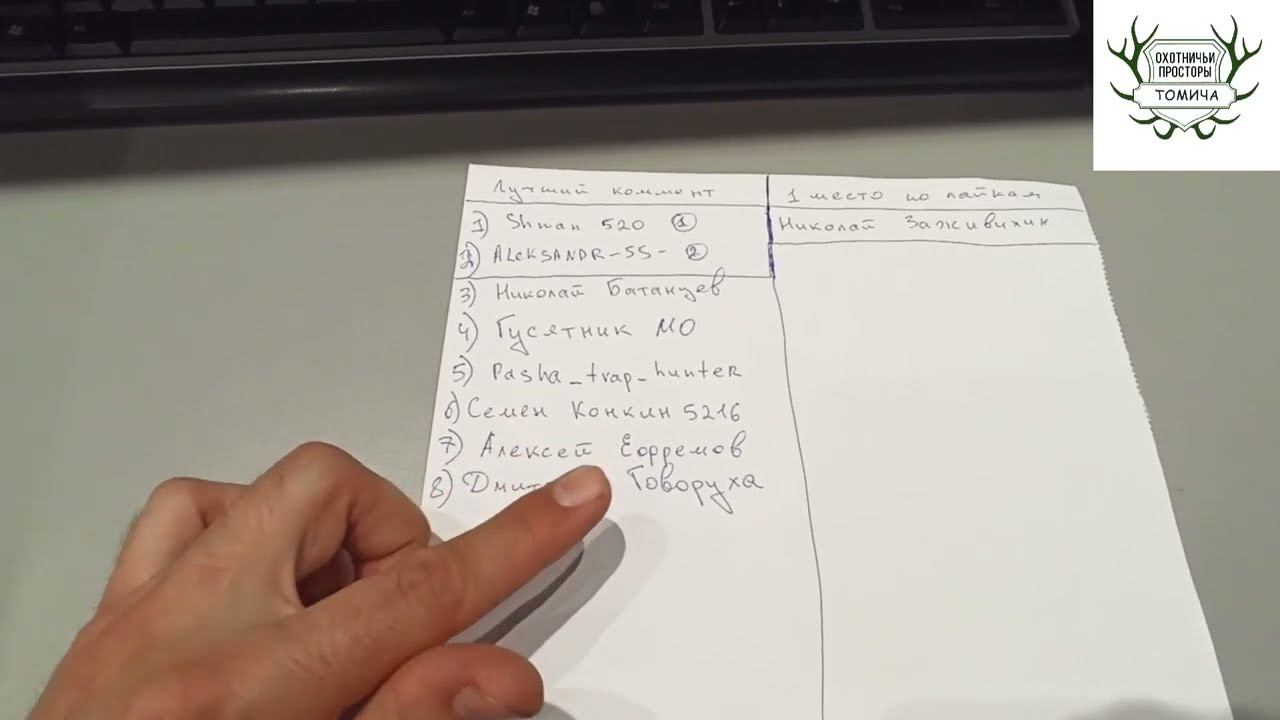 ОХОТНИЧЬИ
ПРОСТОРЫ
ТОМИЧА
Лучший коммент
1) Shman 520 ①
2) ALEKSANDR-SS- ②
3) Николай Батанцев
4) Гусятник МО
5) Pasha_trap_hunter
6) Семен Конкин 5216
7) Алексей Ефремов
8) Говоруха
1 место по лайкам
Николай Заживихин